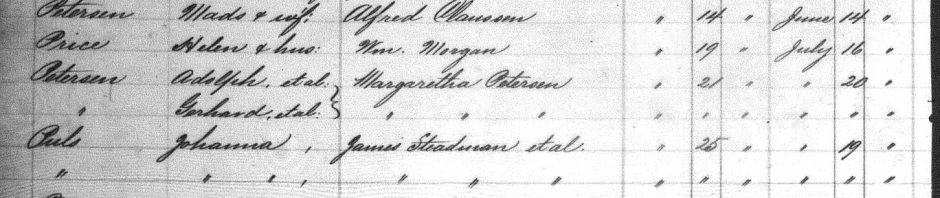 Petersen Mads & wif: Alfred Claussen " 14 " June 14 "
Price Helen & hus: Wm. Morgan " 19 " July 16 "
Petersen Adolph, et al: } Margaretha Petersen " 21 " " 20 "
" Gerhard, et al: } " " " " " " " " "
Puls Johanna , James Steadman et al. " 25 " " 19 "
" " " , " " " " " " " " "